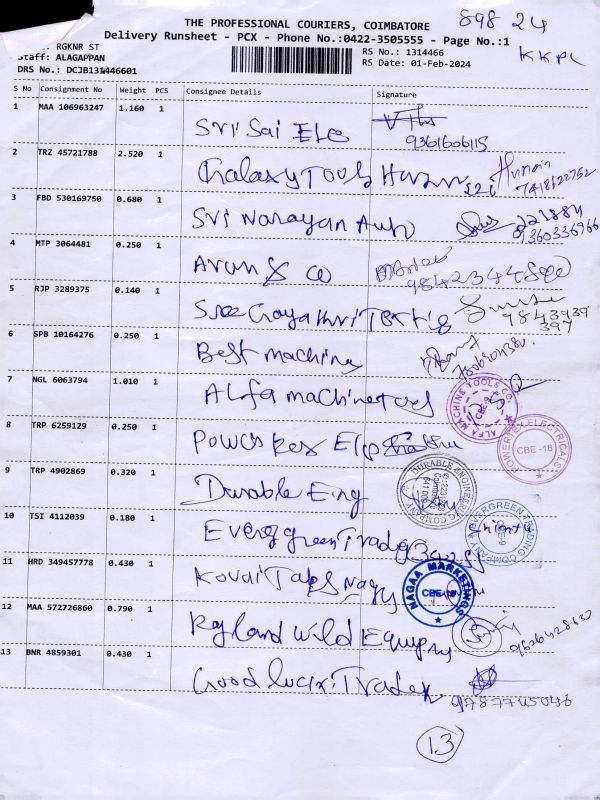 898 24
THE PROFESSIONAL COURIERS, COIMBATORE
Delivery Runsheet - PCX - Phone No.:0422-3505555 - Page No.:1
KKPL
RGKNR ST
RS No.: 1314466
Staff: ALAGAPPAN
RS Date: 01-Feb-2024
DRS No.: DCJB131446601
S No Consignment No Weight PCS Consignee Details Signature
1 MAA 106963247 1.160 1 Sri Sai Ele
9361606115
2 TRZ 45721788 2.520 1 Galaxy Tools
7418622752
3 FBD 530169750 0.680 1 Sri Narayan Auto
4 MTP 3064481 0.250 1 Arun & Co
5 RJP 3289375 0.140 1 Sree Gayathri
9843939
397
6 SPB 10164276 0.250 1 Best machine
7 NGL 6063794 1.010 1 Alfa machine tools
ALFA MACHINE TOOLS CO. CBE-9
8 TRP 6259129 0.250 1 Power
POWERTEX ELECTRICALS CBE -18
9 TRP 4902869 0.320 1 Durable Eng
DURABLE ENGINEERING COMPANY
10 TSI 4112039 0.180 1 Evergreen Trading
EVERGREEN TRADING COMPANY
11 HRD 349457778 0.430 1 Kovai Tapes Nagaa
NAGAA MARKETINGS CBE-18
12 MAA 572726860 0.790 1 Wild Equip
9626428637
13 BNR 4859301 0.430 1 Good luck Trader
9787745046
13